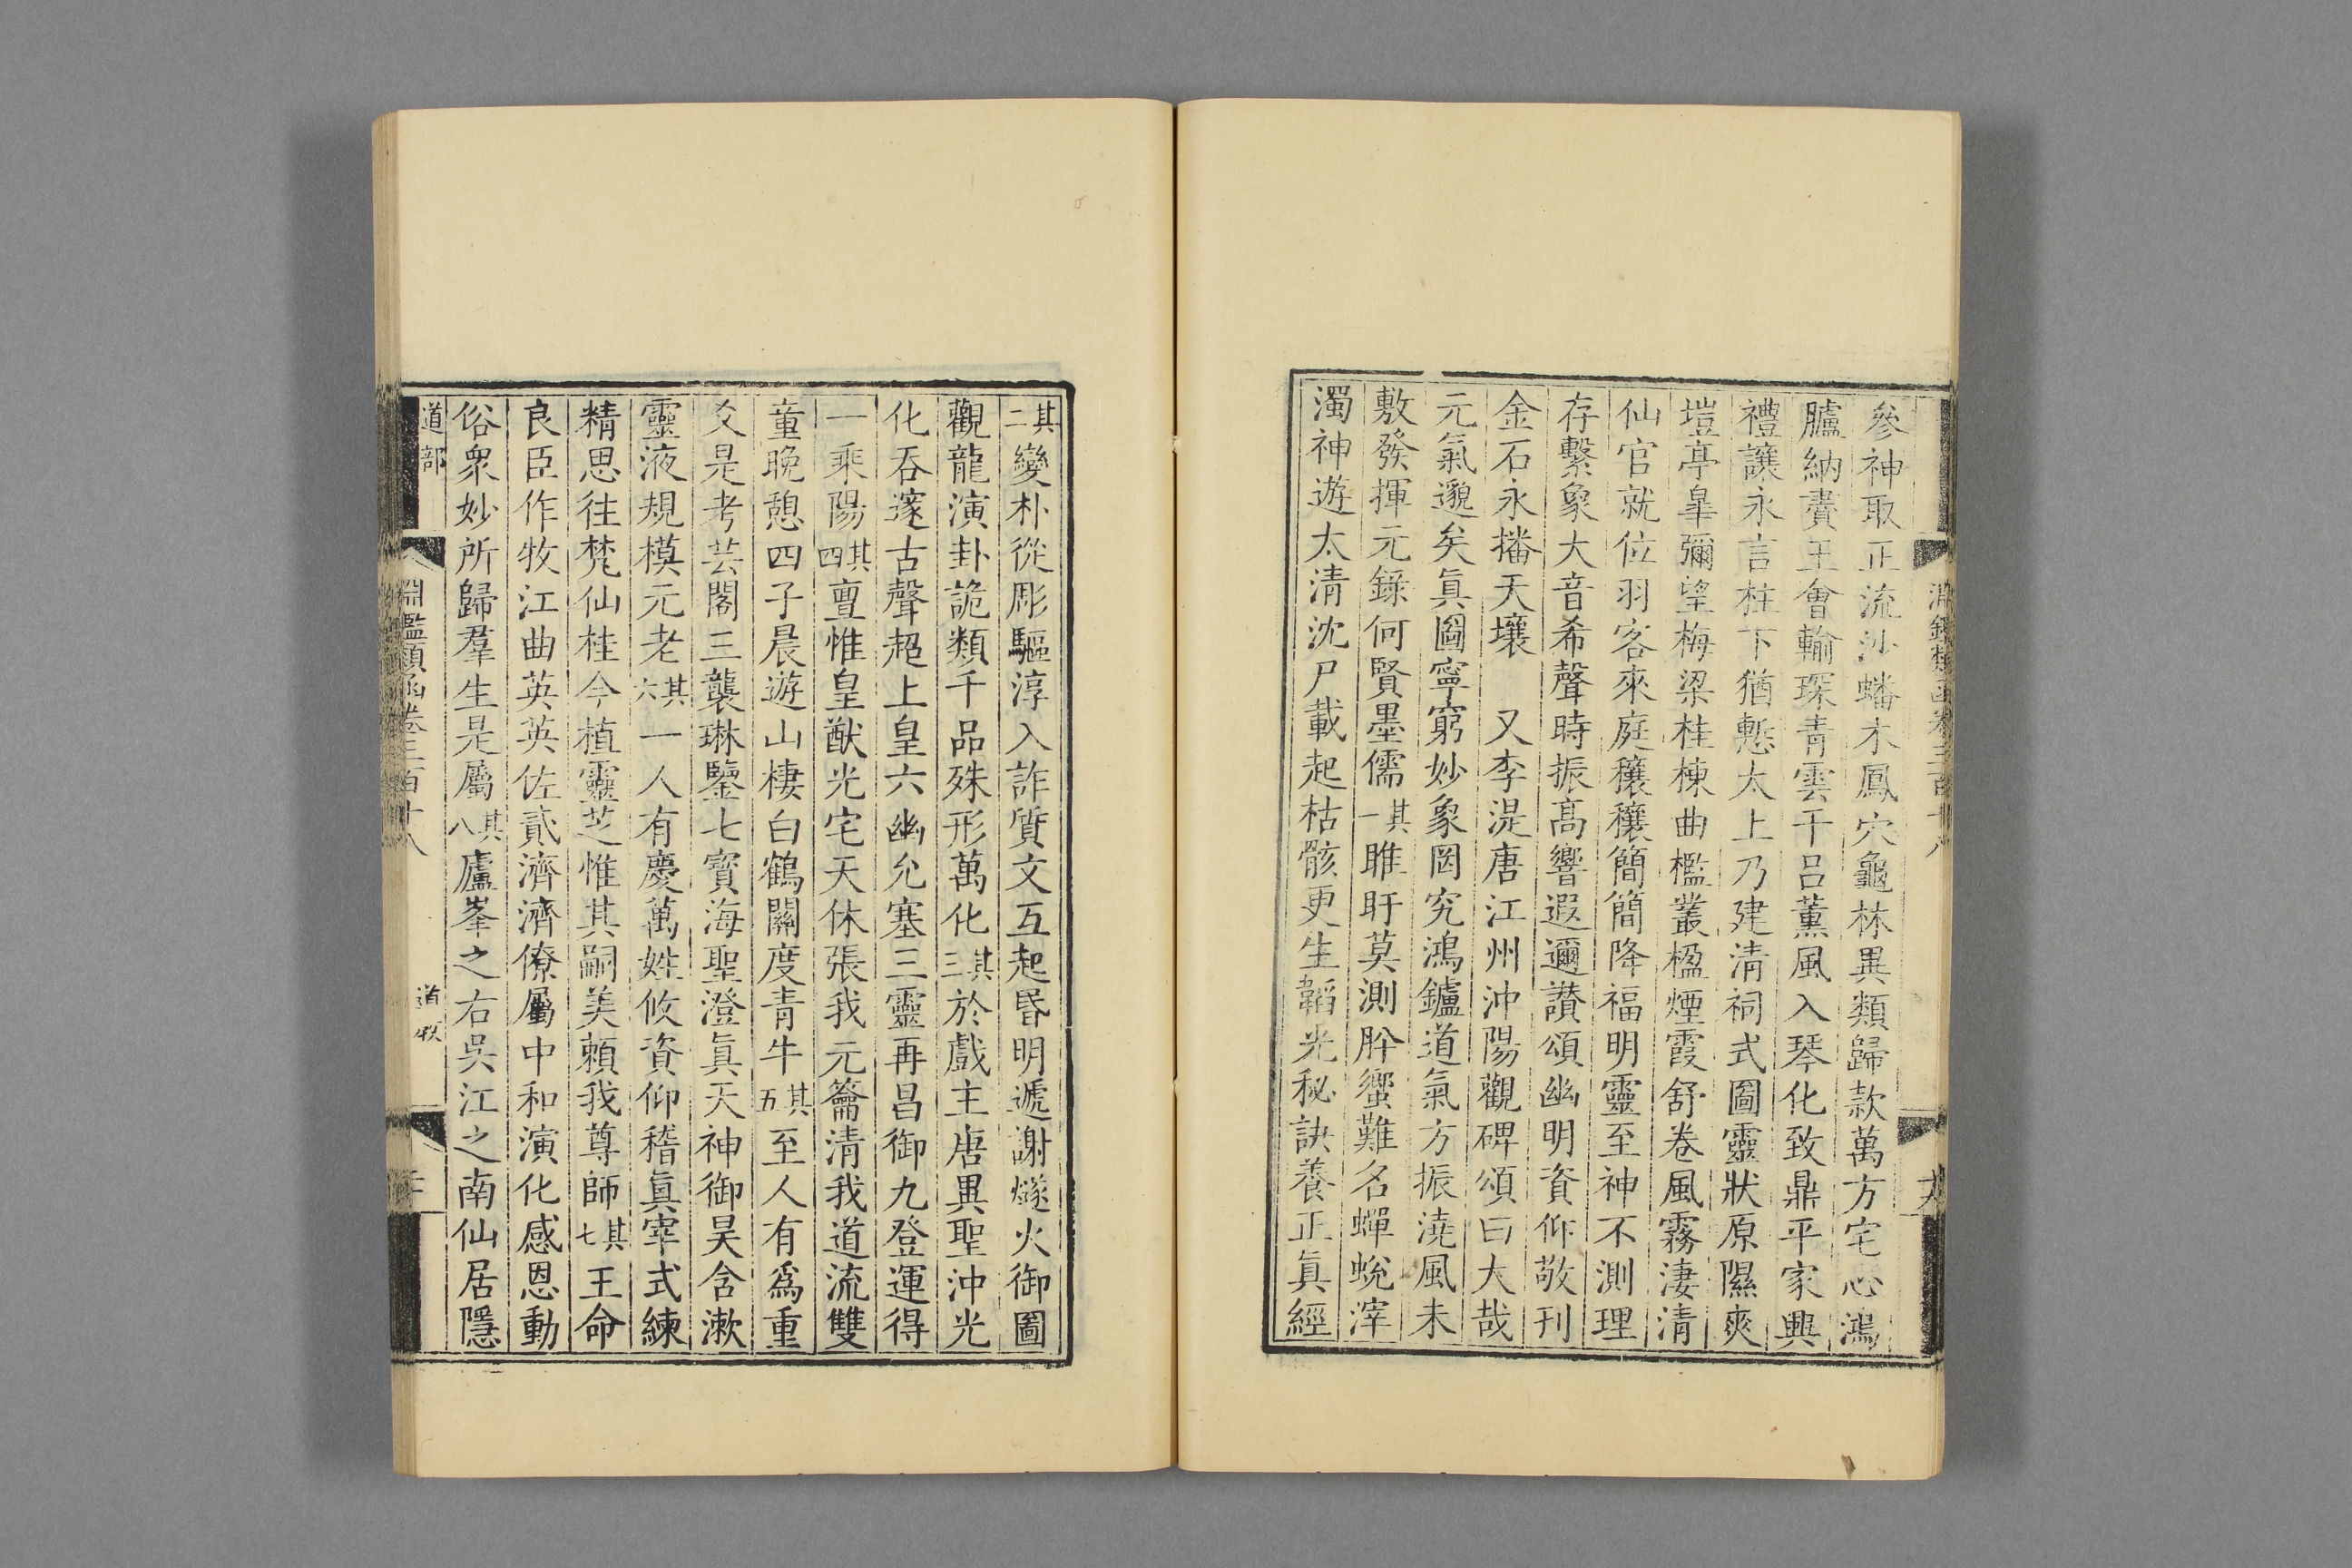 參神取正流沙蟠木鳳穴龜林異類歸款萬方宅心鴻
臚納賮王會輸琛青雲干呂薰風入琴化致鼎平家興
禮讓永言柱下猶慙太上乃建清祠式圖靈狀原隰爽
塏亭皐彌望梅梁桂棟曲檻叢楹煙霞舒卷風霧淒清
仙官就位羽客來庭穰穰簡簡降福明靈至神不測理
存繫象大音希聲時振高響遐邇讚頌幽明資仰敬刊
金石永播天壤 又李湜唐江州沖陽觀碑頌曰大哉
元氣邈矣眞圖寧窮妙象罔究鴻鑪道氣方振澆風未
敷發揮元籙何賢墨儒其一睢盱莫測肸蠁難名蟬蛻滓
濁神遊太清沈尸載起枯骸更生韜光秘訣養正眞經
其二變朴從彫驅淳入詐質文互起昏明遞謝燧火御圖
觀龍演卦詭類千品殊形萬化其三於戲主唐異聖沖光
化吞邃古聲超上皇六幽允塞三靈再昌御九登運得
一乘陽其四亶惟皇猷光宅天休張我元籥清我道流雙
童晚憩四子晨遊山棲白鶴關度青牛其五至人有爲重
爻是考芸閣三襲琳鑒七寶海聖澄眞天神御昊含漱
靈液規模元老其六一人有慶萬姓攸資仰稽眞宰式練
精思往梵仙桂今植靈芝惟其嗣美頼我尊師其七王命
良臣作牧江曲英英佐貳濟濟僚屬中和演化感恩動
俗衆妙所歸羣生是屬其八廬峯之右吳江之南仙居隱
道部
淵鑑類函卷三百十八
道教